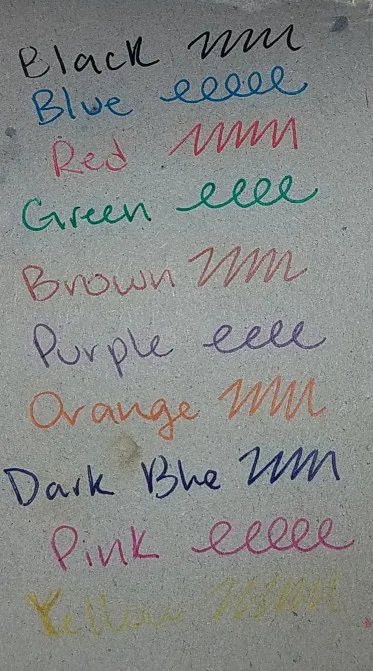 Black
Blue
Red
Green
Brown
Purple
Orange
Dark Blue
Pink
Yellow